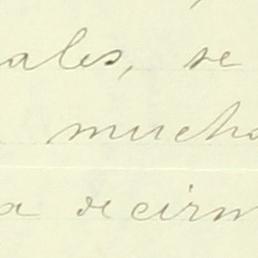 ales, se
mucho
a decirm